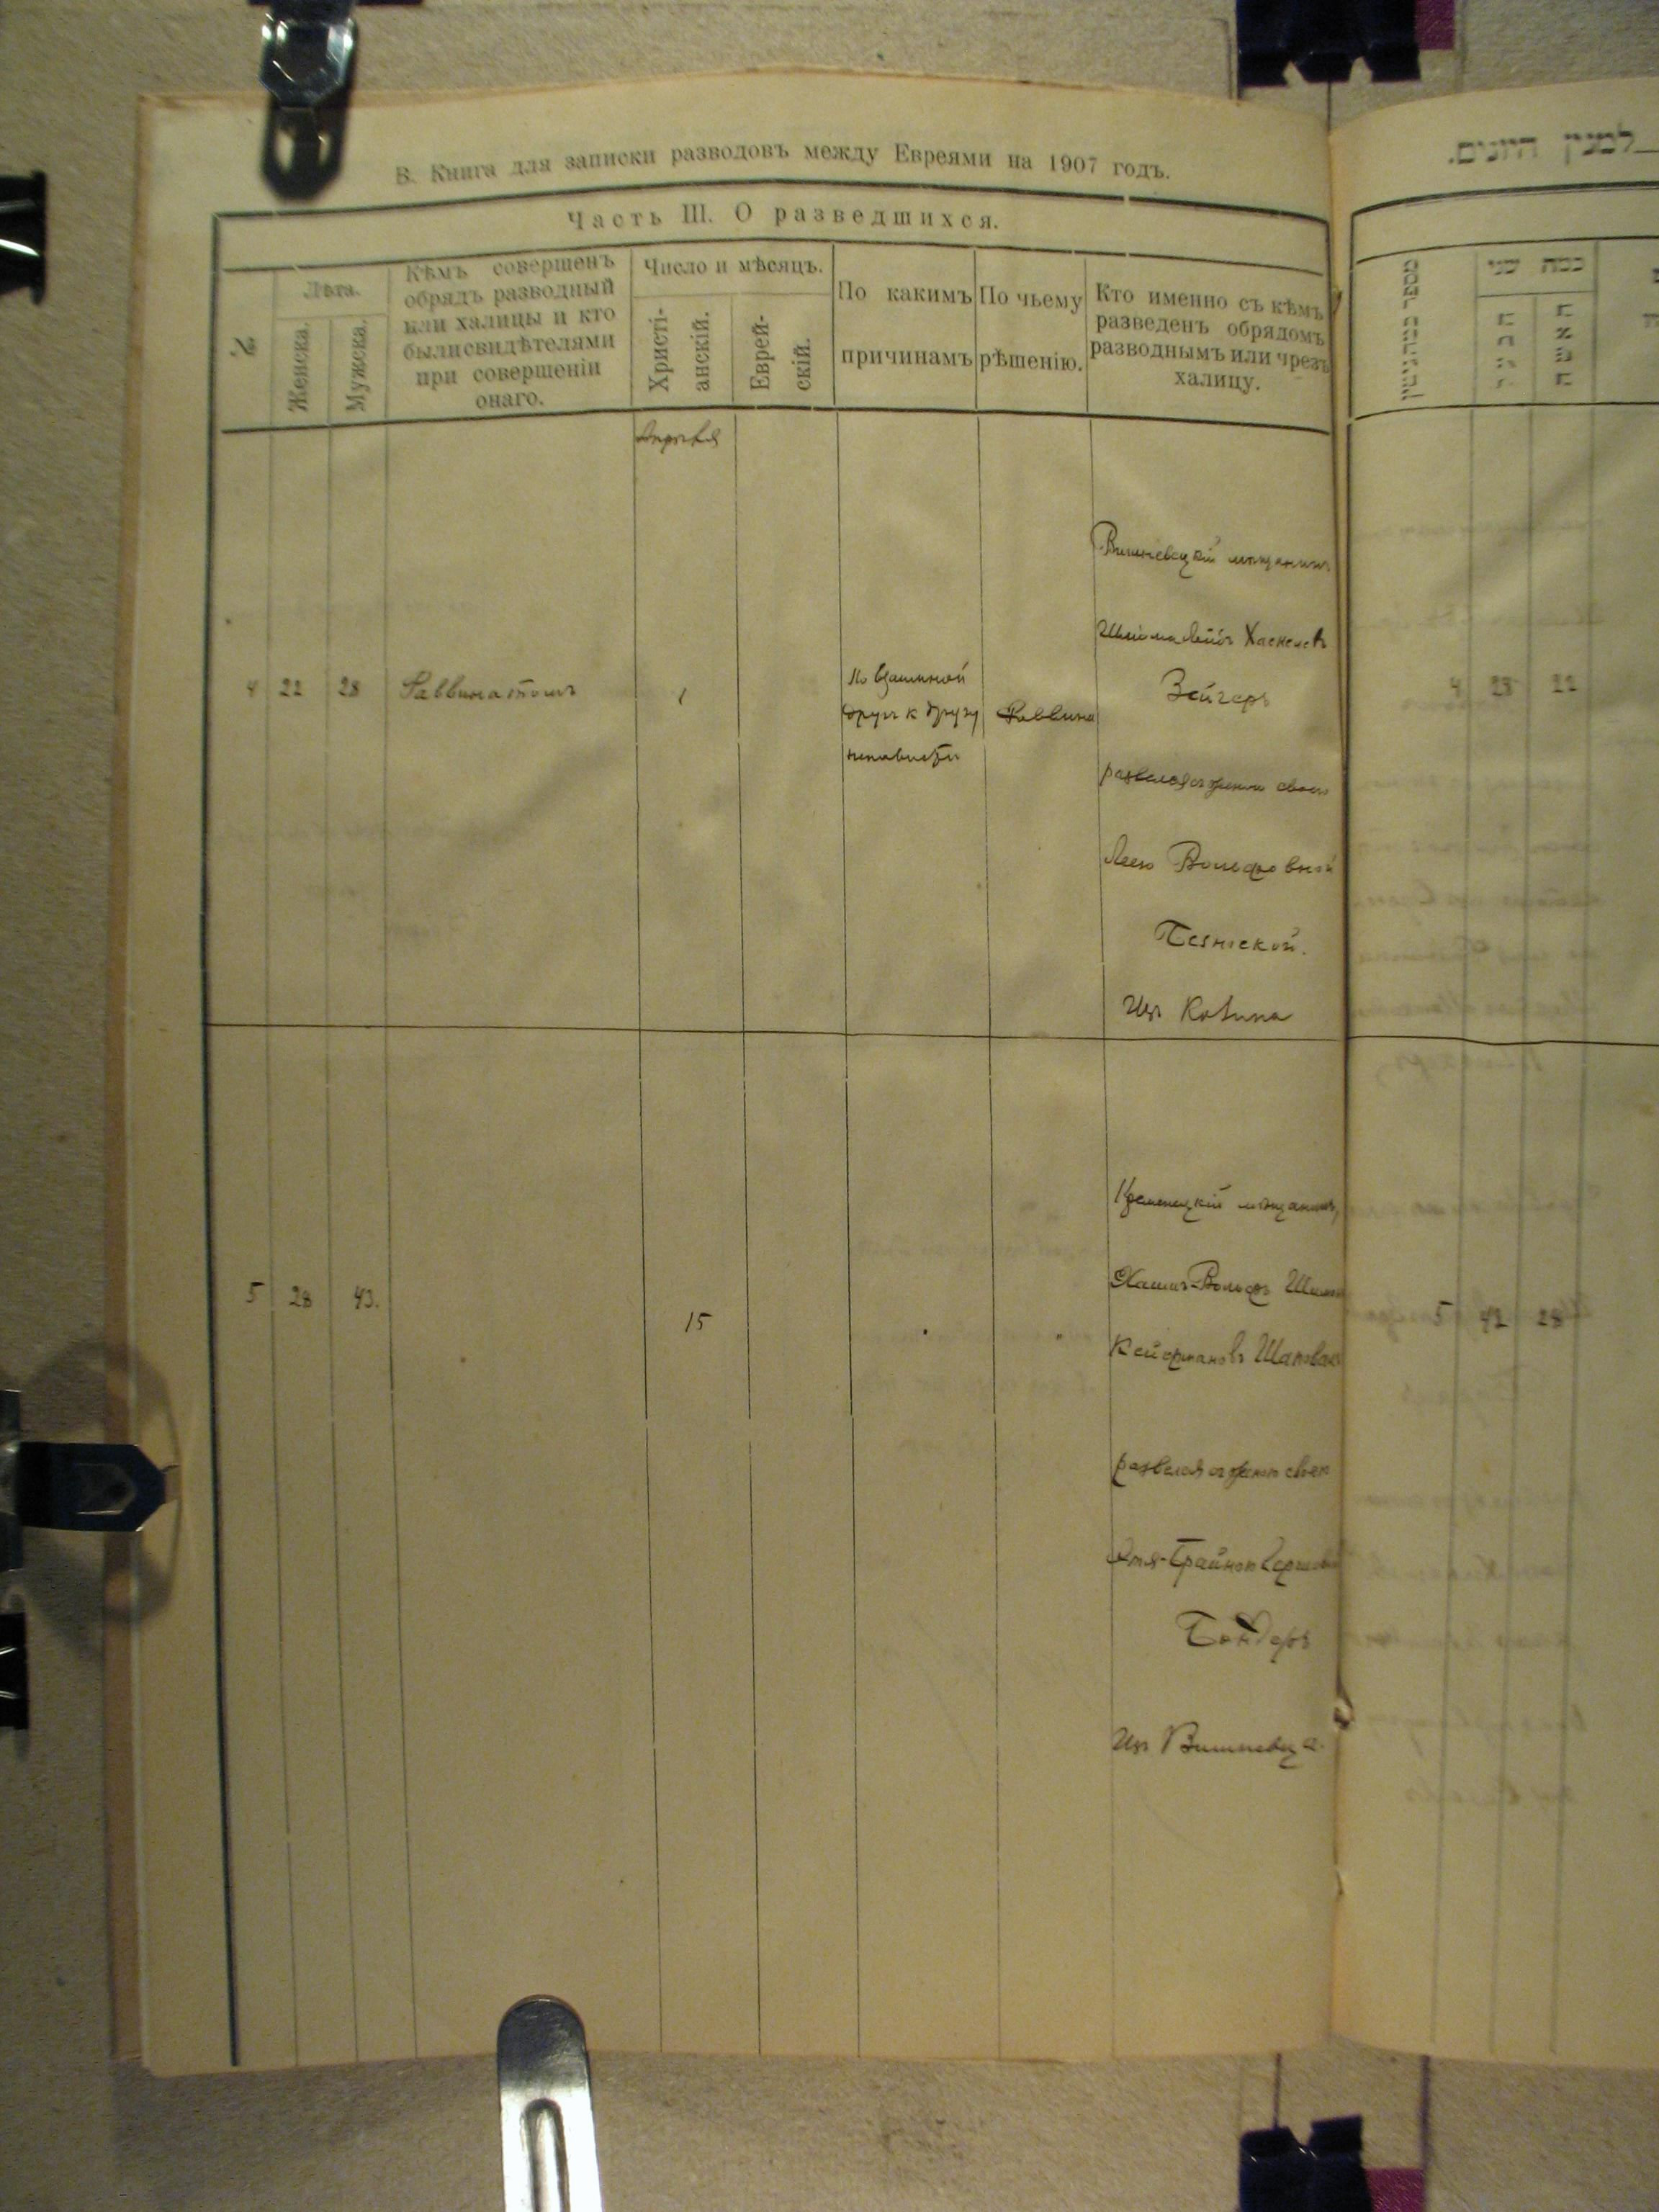 В. Книга для записки разводовъ между Евреями на 1907 годъ.
Часть III. О разведшихся.
№
Лѣта.
Женска.
Мужска.
Кѣмъ совершенъ
обрядъ разводный
или халицы и кто
были свидѣтелями
при совершеніи
онаго.
Число и мѣсяцъ.
Христі-
анскій.
Еврей-
скій.
По какимъ
причинамъ
По чьему
рѣшенію.
Кто именно съ кѣмъ
разведенъ обрядомъ
разводнымъ или чрезъ
халицу.
Апрѣля
4 22 28 Раввинатомъ 1
По взаимной
другъ к другу
ненависти
Раввина
Вишневецкій мѣщанинъ
Шлёма Лейбъ Хаскелев
Зейгеръ
развелся съ женою своею
Леею Вольфовной
Из Ковина
5 28 43. 15
Кременецкій мѣщанинъ,
Хаимъ-Вольфъ
Кейфмановъ
развелся съ женою своею
Бондеръ
Из Вишневца.
למנין היונים.
כמה שני
4 23 22
5 42 28